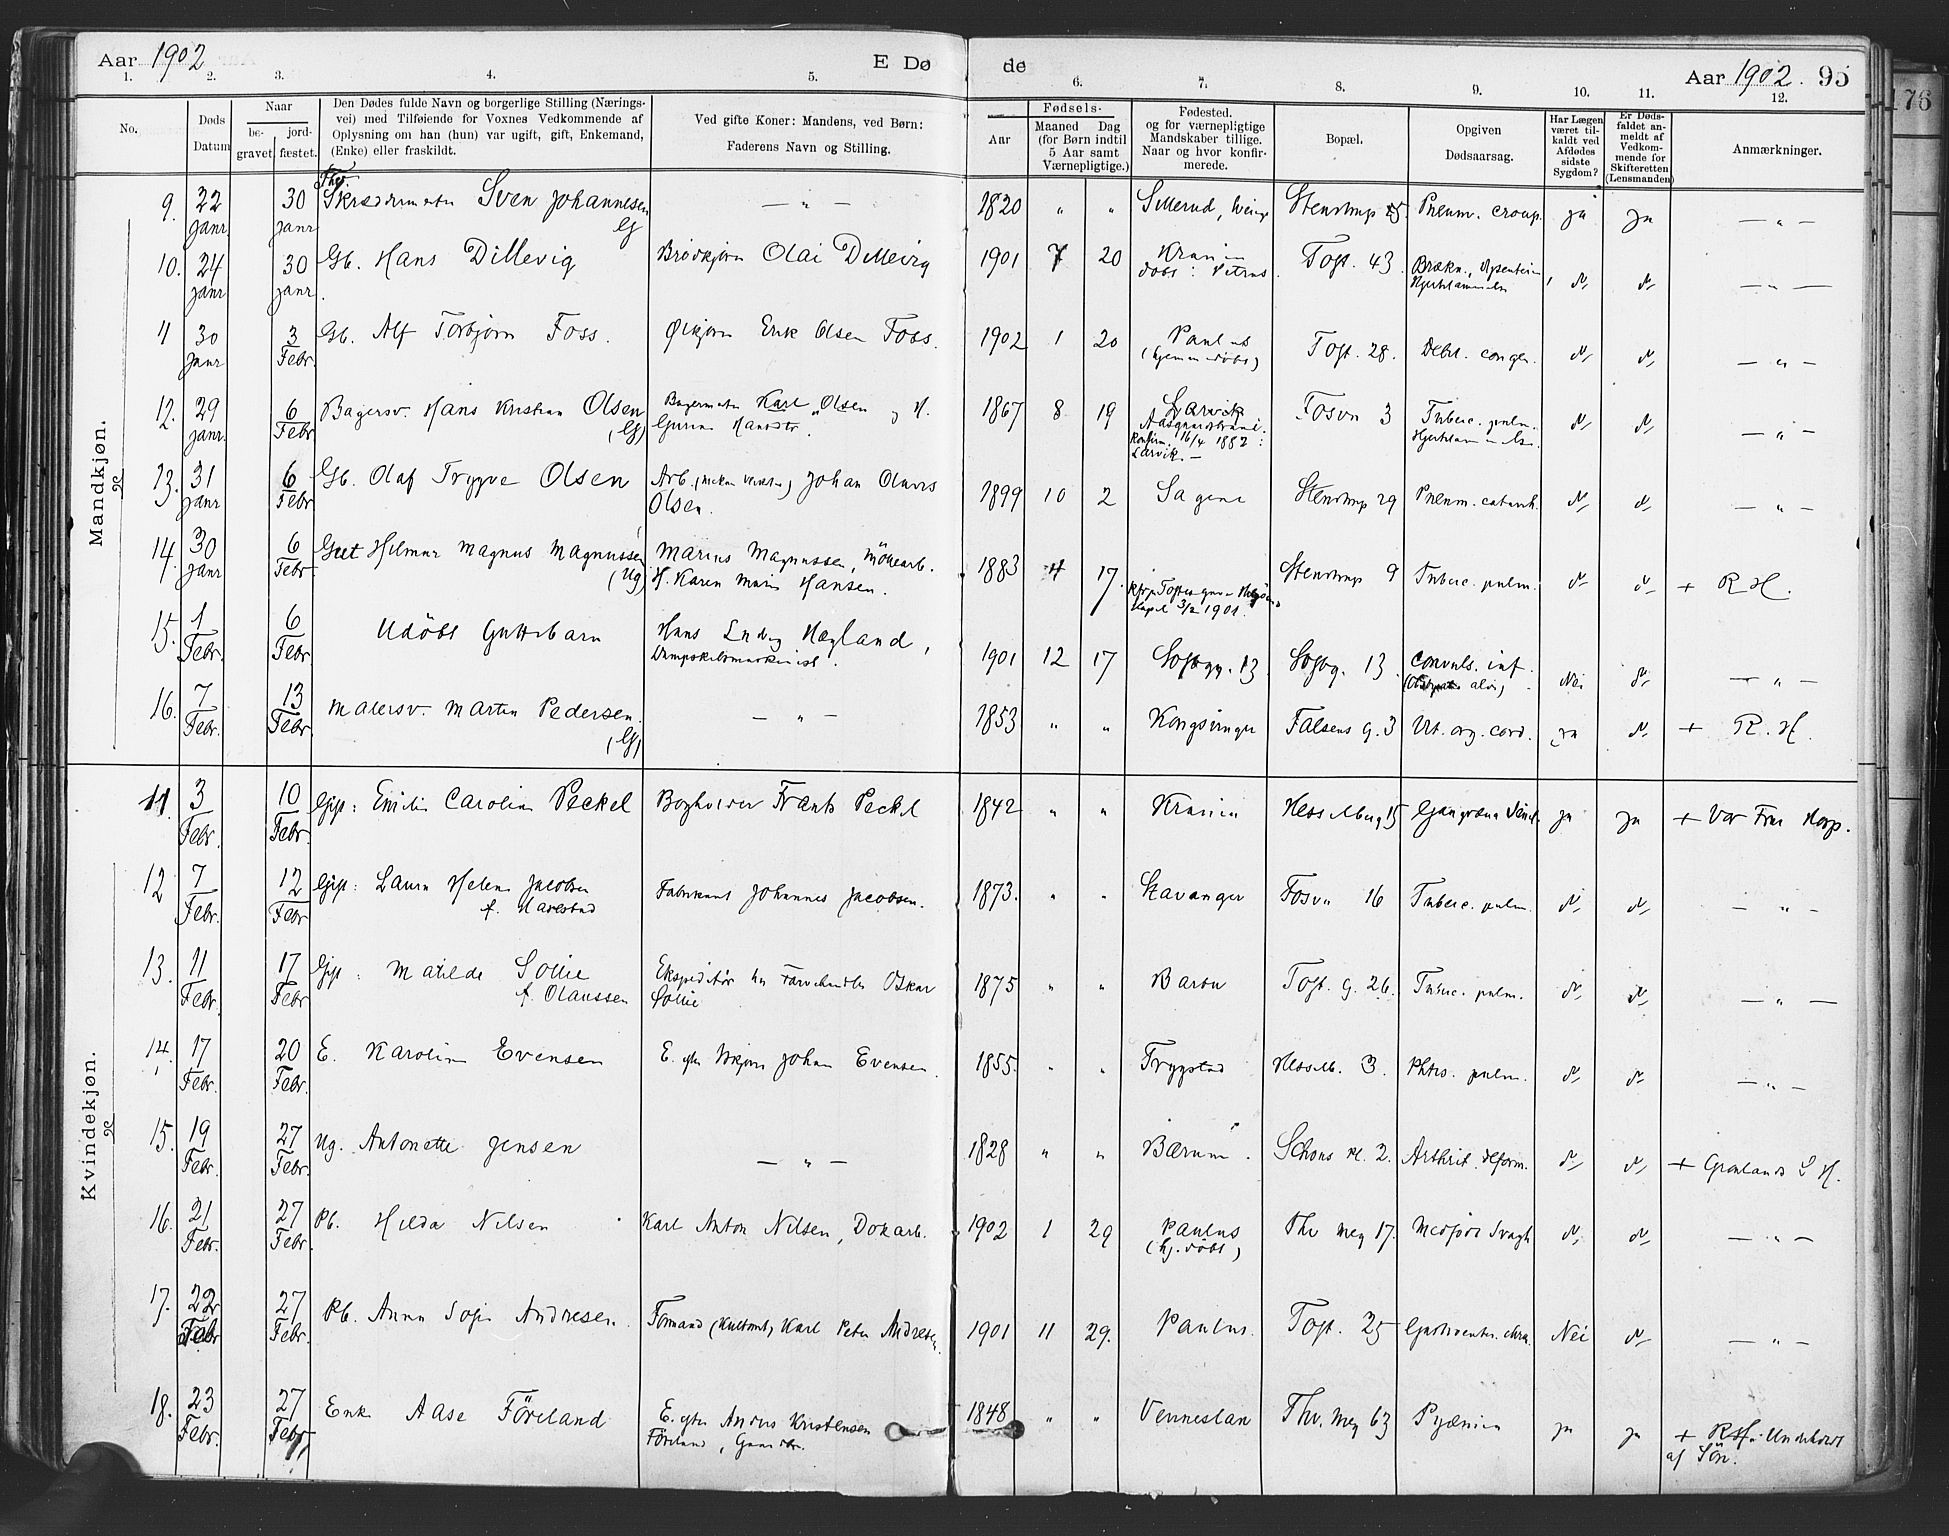 Aar 1902 E Dø de Aar 1902. 95
176
1. 2. 3. 4. 5. 6. 7. 8. 9. 10. 11. 12.
No.
Døds Datum
Naar
be- gravet.
jord- fæstet.
Den Dødes fulde Navn og borgerlige Stilling (Nærings-
vei) med Tilføiende for Voxnes Vedkommende af
Oplysning om han (hun) var ugift, gift, Enkemand,
(Enke) eller fraskildt.
Ved gifte Koner: Mandens, ved Børn:
Faderens Navn og Stilling.
Fødsels-
Aar
Maaned Dag
(for Børn indtil
5 Aar samt
Værnepligtige.)
Fødested.
og for værnepligtige
Mandskaber tillige.
Naar og hvor konfir-
merede.
Bopæl.
Opgiven
Dødsaarsag.
Har Lægen
været til-
kaldt ved
Afdødes
sidste
Sygdom?
Er Døds-
faldet an-
meldt af
Vedkom-
mende for
Skifteretten
(Lensmanden)
Anmærkninger.
Mandkjøn.
9. 22 Janr. 30 Janr Sven Johannesen G — " — 1820 " " Stenstrup 15. Pneum. croup. ja ja — " —
10. 24 Janr 30 Janr. Gb. Hans Dillevig Brødkjører Olai Dillevig 1901 7 20 Krania Toft. 43. — " —
11 30 Janr 3 Febr. Gb. Alf Torbjørn Foss. Ølkjører Erik Olsen Foss. 1902 1 20 Paulus (hjemmedøbt) Toft. 28. Debil. congen. — " —
12. 29 Janr. 6 Febr Bagersv. Hans Kristian Olsen (G) Bagermester Karl Olsen og H. 1867 8 19 Larvik Konfirm. 16/4 1882 Larvik. — Fosvn 3 Tuberc. pulm. — " —
13. 31 Janr 6 Febr Gb. Olaf Trygve Olsen Arb. Johan Olaves Olsen. 1899 10 2 Sagene Stenstrup 29 Pneum. catarrh. — " —
14. 30 Janr 6 Febr. Hilmar Magnus Magnussen (Ug) Marius Magnussen, H. Karen Marie Hansen. 1883 4 17. 3/2 1901. Stenstrup 9 Tuberc. pulm. + R H.
15. 1 Febr. 6 Febr. Udöbt Guttebarn Hans Ludvig Hægland, Dampskibsmaskinist. 1901 12 17 Sofbgg. 13 Sofbg. 13. Convuls. inf. Nei — " —
16. 7 Febr. 13 Febr. Malersv. Martin Pedersen. (G) — " — 1853 " " Kongsvinger Falsens g. 3 Vit. org. cord. ja + R. H.
Kvindekjøn.
11. 3 Febr. 10 Febr. Gift: Emilie Caroline Peckel Bogholder Frantz Peckel 1842 " " Krania Hesselberg 15 ja ja + Vor Frue Hosp.
12 7 Febr. 12 Febr. Gift: Laura Helene Jacobsen f. Harestad Fabrikant Johannes Jacobsen. 1873. " " Stavanger Fosvn 16 Tuberc. pulm. — " —
13. 11 Febr. 17 Febr Gift: Matilde Sollie f. Olaussen Ekspeditør hos Farvehandler Oskar Sollie 1875 " " Barbu Toft. g. 26. Tuberc. pulm. — " —
14. 17 Febr. 20 Febr. E. Karoline Evensen E. efter Johan Evensen. 1855. " " Trygstad Hesselb. 3. Phtis. pulm. — " —
15. 19 Febr. 27 Febr. Ug. Antonette Jensen — " — 1828 " " Bærum. Schous pl. 2. Arthrit. deform. + Grønlands S H.
16. 21 Febr. 27 Febr. Pb. Hilda Nilsen Karl Anton Nilsen, Dokarb. 1902 1 29 Paulus (hj. døbt) Thv Mey 17. Medfødt Svagh — " —
17. 22 Febr 27 Febr. Pb. Anna Sofie Andresen. Formand Karl Peter Andresen. 1901 11 29. Paulus. Toft. 25 Nei — " —
18. 23 Febr. 27 Febr. Enke Aase Föreland E. efter Anders Kristensen Föreland, Gaardbr. 1848 " " Venneslan Thv. Mey 63 Pyæmia ja ja + RH. Underholdt af Sön.